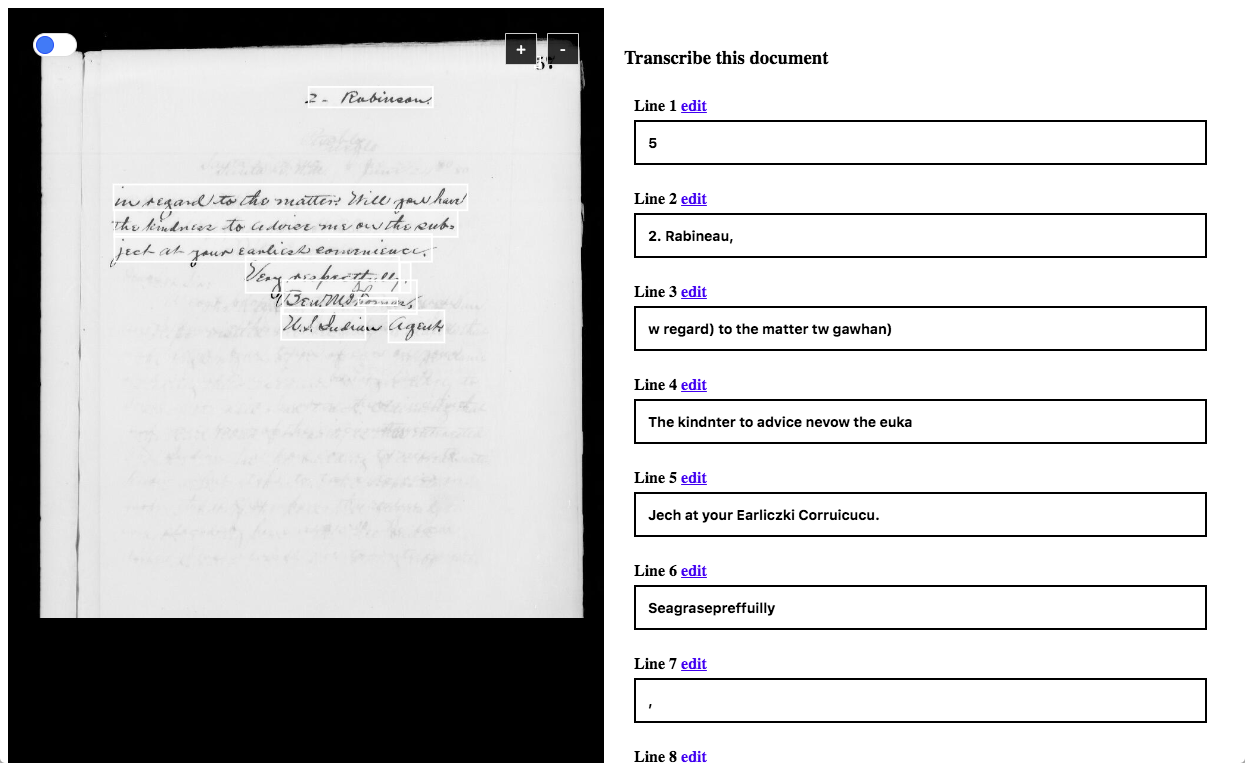 +
-
57
2 - Robinson.
in regard to the matter. Will you have
the kindness to advise me on the sub-
ject at your earliest convenience.
Very respectfully,
Ben. M. Thomas,
U.S. Indian Agent
Transcribe this document
Line 1 edit
5
Line 2 edit
2. Rabineau,
Line 3 edit
w regard) to the matter tw gawhan)
Line 4 edit
The kindnter to advice nevow the euka
Line 5 edit
Jech at your Earliczki Corruicucu.
Line 6 edit
Seagrasepreffuilly
Line 7 edit
,
Line 8 edit